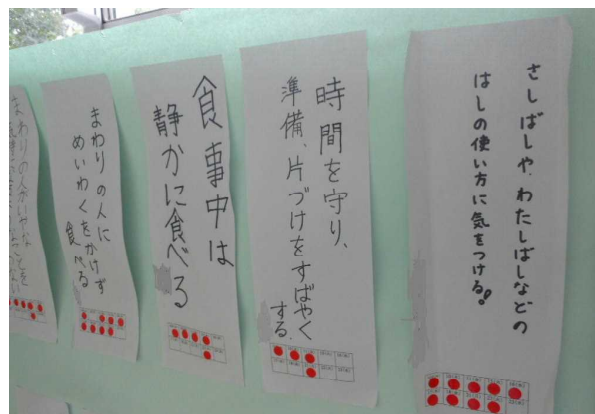 さしばしや、わたしばしなどの
はしの使い方に気をつける!
時間を守り、
準備、片づけをすばやく
する
食事中は
静かに食べる
まわりの人に
めいわくをかけず
食べる
まわりの人がいやな